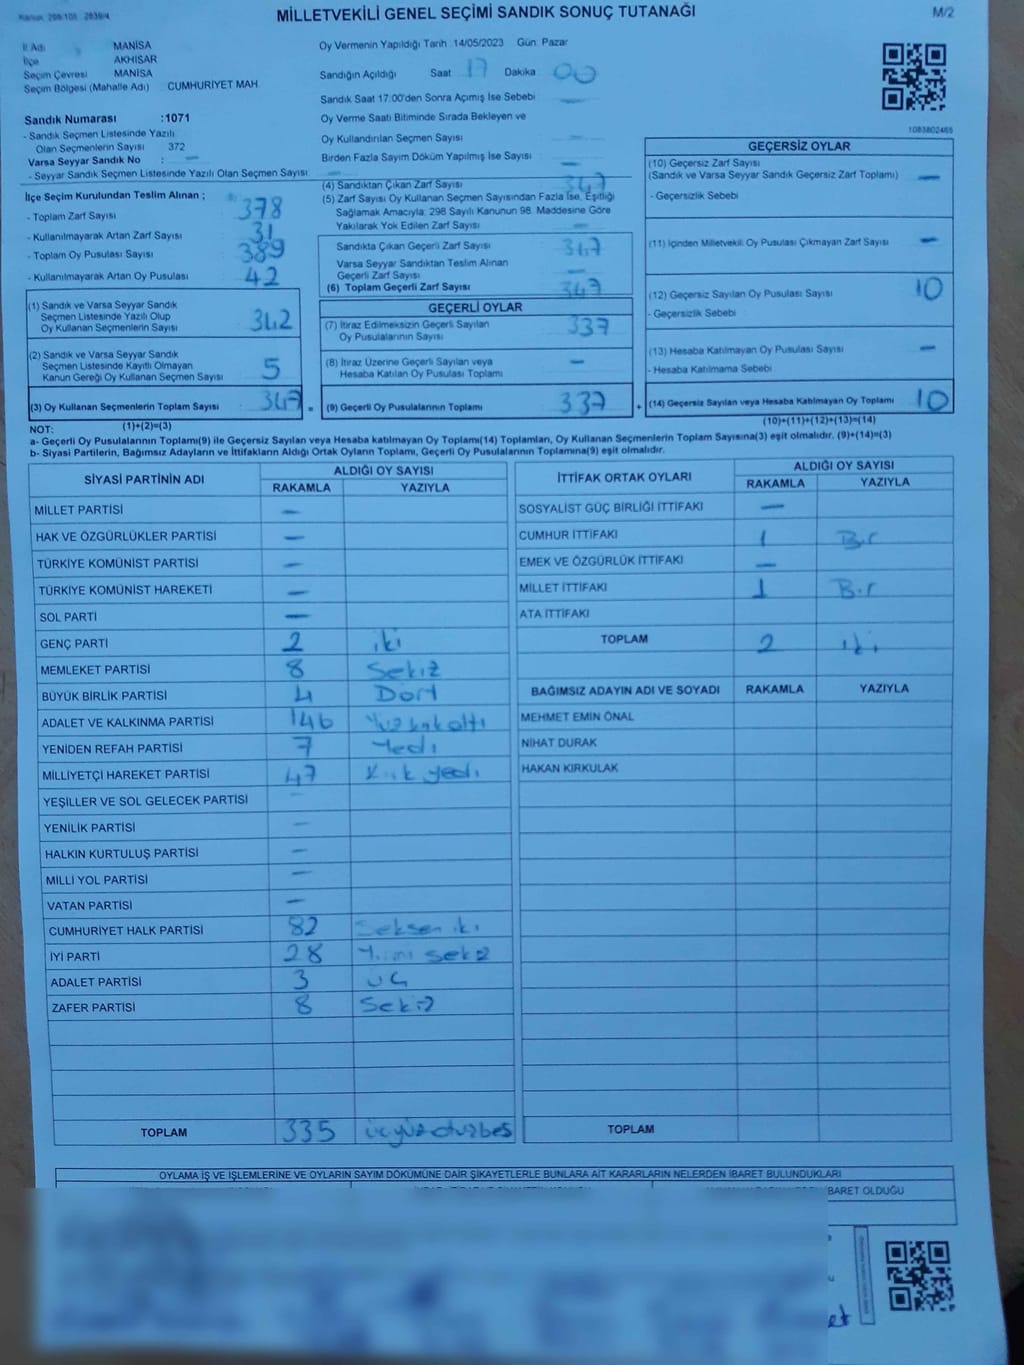 MİLLETVEKİLİ GENEL SEÇİMİ SANDIK SONUÇ TUTANAĞI
M/2
İl Adı MANİSA
İlçe AKHİSAR
Seçim Çevresi MANİSA
Seçim Bölgesi (Mahalle Adı) CUMHURİYET MAH
Sandık Numarası :1071
- Sandık Seçmen Listesinde Yazılı
Olan Seçmenlerin Sayısı 372
Varsa Seyyar Sandık No : -
- Seyyar Sandık Seçmen Listesinde Yazılı Olan Seçmen Sayısı
Oy Vermenin Yapıldığı Tarih 14/05/2023 Gün Pazar
Sandığın Açıldığı Saat 17 Dakika 00
Sandık Saat 17:00'den Sonra Açımış İse Sebebi -
Oy Verme Saati Bitiminde Sırada Bekleyen ve
Oy Kullandırılan Seçmen Sayısı -
Birden Fazla Sayım Döküm Yapılmış İse Sayısı -
1083802465
İlçe Seçim Kurulundan Teslim Alınan ;
- Toplam Zarf Sayısı 378
- Kullanılmayarak Artan Zarf Sayısı 31
- Toplam Oy Pusulası Sayısı 389
- Kullanılmayarak Artan Oy Pusulası 42
(1) Sandık ve Varsa Seyyar Sandık
Seçmen Listesinde Yazılı Olup
Oy Kullanan Seçmenlerin Sayısı 342
(2) Sandık ve Varsa Seyyar Sandık
Seçmen Listesinde Kayıtlı Olmayan
Kanun Gereği Oy Kullanan Seçmen Sayısı 5
(3) Oy Kullanan Seçmenlerin Toplam Sayısı 347 =
(4) Sandıktan Çıkan Zarf Sayısı 347
(5) Zarf Sayısı Oy Kullanan Seçmen Sayısından Fazla İse, Eşitliği
Sağlamak Amacıyla; 298 Sayılı Kanunun 98. Maddesine Göre
Yakılarak Yok Edilen Zarf Sayısı -
Sandıkta Çıkan Geçerli Zarf Sayısı 347
Varsa Seyyar Sandıktan Teslim Alınan
Geçerli Zarf Sayısı -
(6) Toplam Geçerli Zarf Sayısı 347
GEÇERLİ OYLAR
(7) İtiraz Edilmeksizin Geçerli Sayılan
Oy Pusulalarının Sayısı 337
(8) İtiraz Üzerine Geçerli Sayılan veya
Hesaba Katılan Oy Pusulası Toplamı -
(9) Geçerli Oy Pusulalarının Toplamı 337 +
GEÇERSİZ OYLAR
(10) Geçersiz Zarf Sayısı
(Sandık ve Varsa Seyyar Sandık Geçersiz Zarf Toplamı) -
- Geçersizlik Sebebi
(11) İçinden Milletvekili Oy Pusulası Çıkmayan Zarf Sayısı -
(12) Geçersiz Sayılan Oy Pusulası Sayısı 10
- Geçersizlik Sebebi
(13) Hesaba Katılmayan Oy Pusulası Sayısı -
- Hesaba Katılmama Sebebi
(14) Geçersiz Sayılan veya Hesaba Katılmayan Oy Toplamı 10
NOT: (1)+(2)=(3)
(10)+(11)+(12)+(13)=(14)
a- Geçerli Oy Pusulalarının Toplamı(9) ile Geçersiz Sayılan veya Hesaba katılmayan Oy Toplamı(14) Toplamları, Oy Kullanan Seçmenlerin Toplam Sayısına(3) eşit olmalıdır. (9)+(14)=(3)
b- Siyasi Partilerin, Bağımsız Adayların ve İttifakların Aldığı Ortak Oyların Toplamı, Geçerli Oy Pusulalarının Toplamına(9) eşit olmalıdır.
SİYASİ PARTİNİN ADI ALDIĞI OY SAYISI
RAKAMLA YAZIYLA
MİLLET PARTİSİ -
HAK VE ÖZGÜRLÜKLER PARTİSİ -
TÜRKİYE KOMÜNİST PARTİSİ -
TÜRKİYE KOMÜNİST HAREKETİ -
SOL PARTİ -
GENÇ PARTİ 2 iki
MEMLEKET PARTİSİ 8 Sekiz
BÜYÜK BİRLİK PARTİSİ 4 Dört
ADALET VE KALKINMA PARTİSİ 146
YENİDEN REFAH PARTİSİ 7 Yedi
MİLLİYETÇİ HAREKET PARTİSİ 47 Kırk yedi
YEŞİLLER VE SOL GELECEK PARTİSİ -
YENİLİK PARTİSİ -
HALKIN KURTULUŞ PARTİSİ -
MİLLİ YOL PARTİSİ -
VATAN PARTİSİ -
CUMHURİYET HALK PARTİSİ 82 Seksen iki
İYİ PARTİ 28 Yirmi sekiz
ADALET PARTİSİ 3 üç
ZAFER PARTİSİ 8 Sekiz
TOPLAM 335 üçyüzotuzbeş
İTTİFAK ORTAK OYLARI ALDIĞI OY SAYISI
RAKAMLA YAZIYLA
SOSYALİST GÜÇ BİRLİĞİ İTTİFAKI -
CUMHUR İTTİFAKI 1 Bir
EMEK VE ÖZGÜRLÜK İTTİFAKI -
MİLLET İTTİFAKI 1 Bir
ATA İTTİFAKI
TOPLAM 2 iki
BAĞIMSIZ ADAYIN ADI VE SOYADI RAKAMLA YAZIYLA
MEHMET EMİN ÖNAL
NİHAT DURAK
HAKAN KIRKULAK
TOPLAM
OYLAMA İŞ VE İŞLEMLERİNE VE OYLARIN SAYIM DÖKÜMÜNE DAİR ŞİKAYETLERLE BUNLARA AİT KARARLARIN NELERDEN İBARET BULUNDUKLARI
BARET OLDUĞU